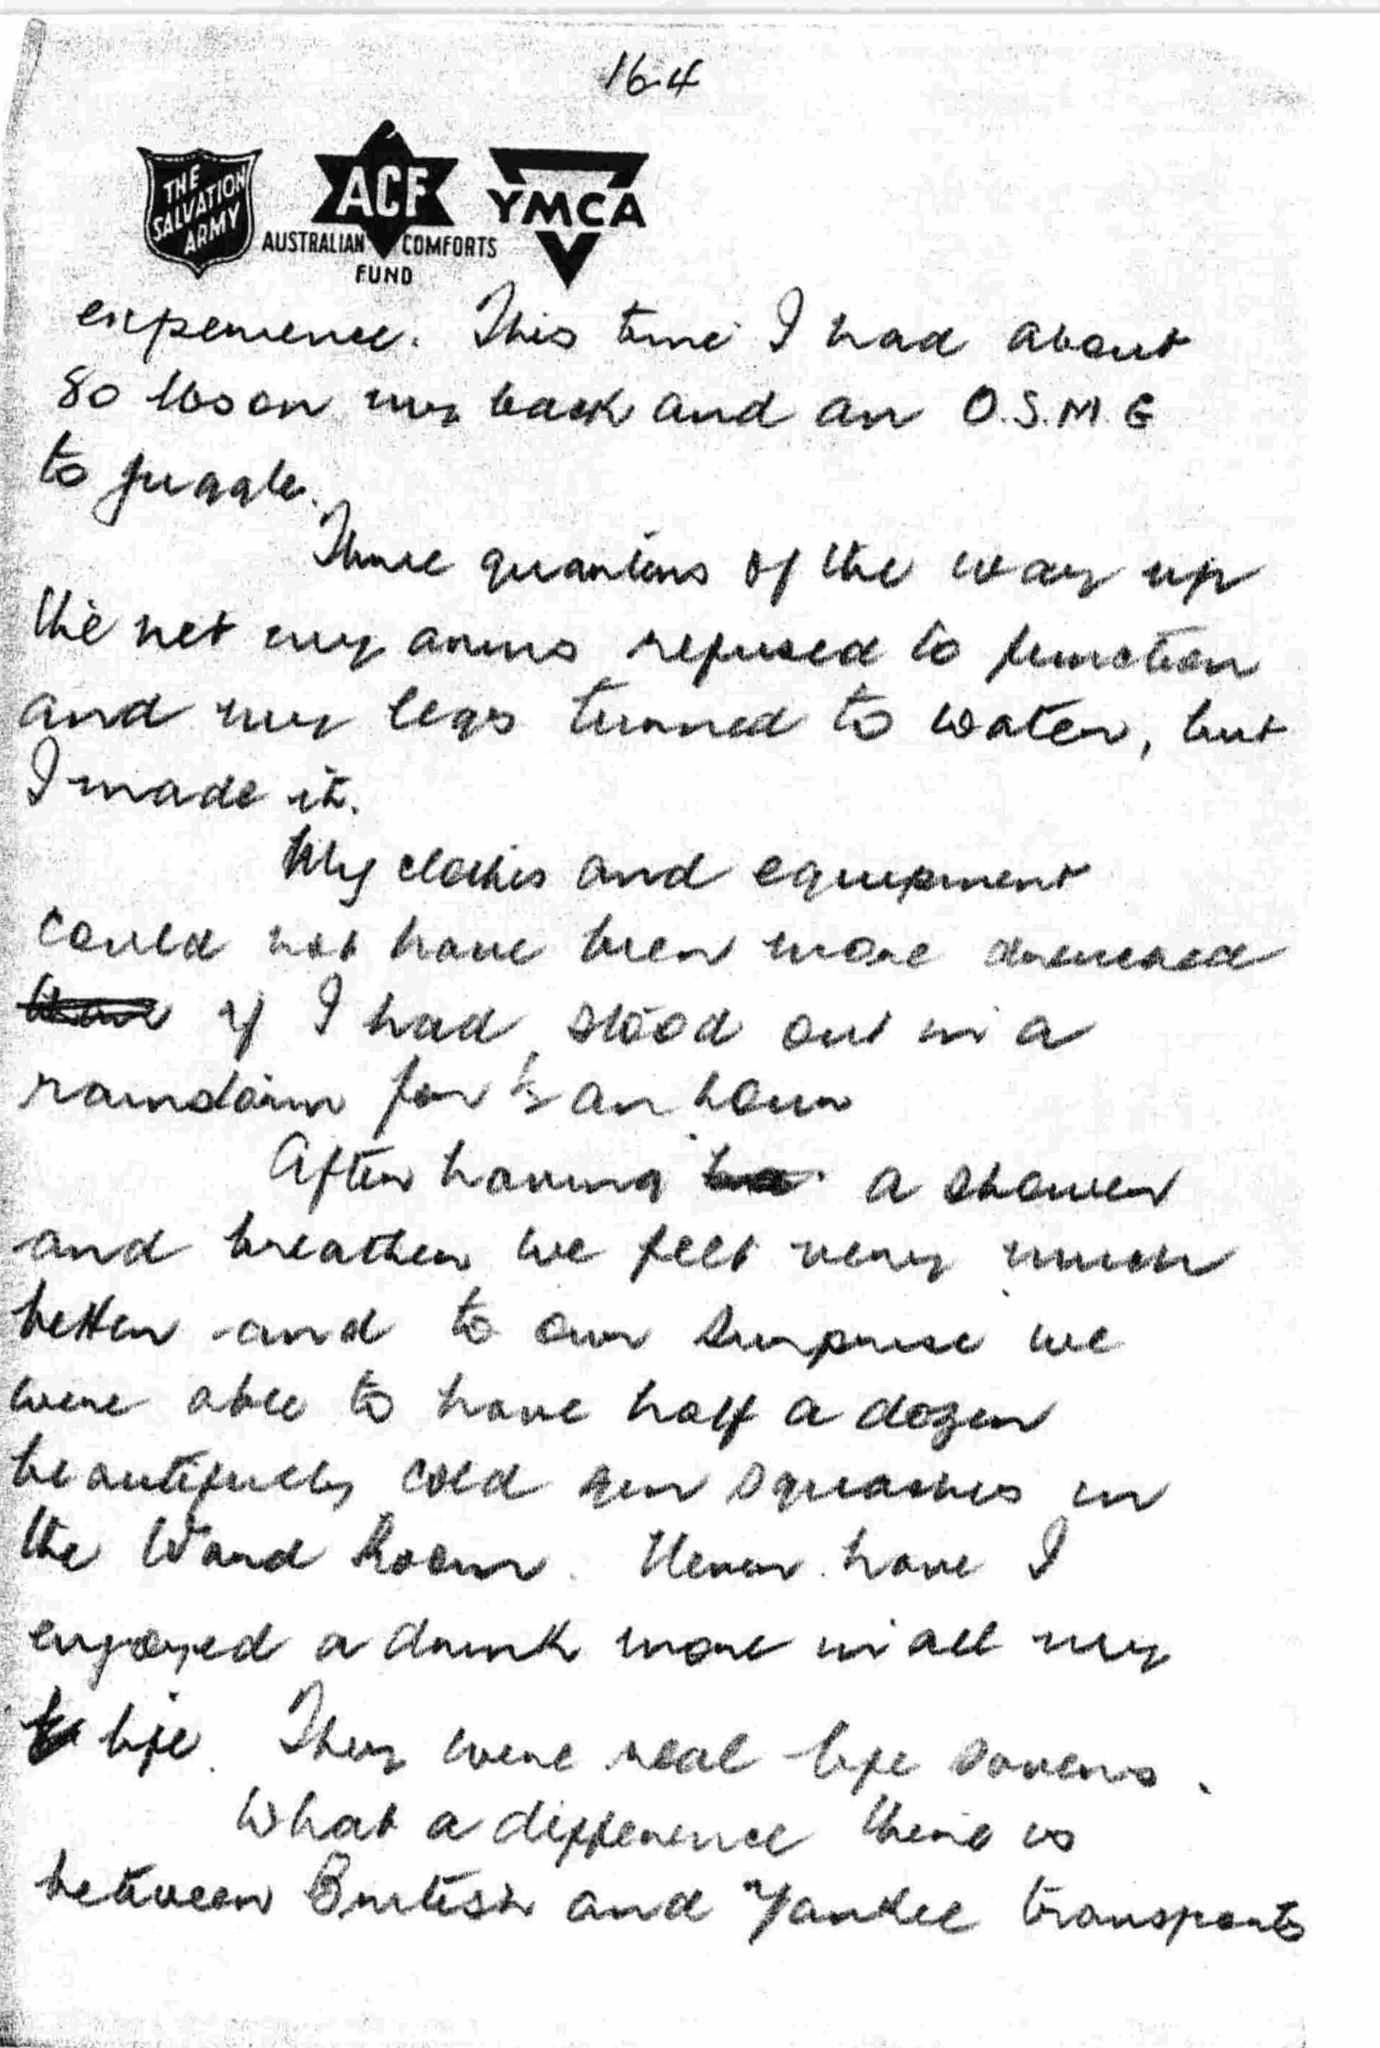 164
THE SALVATION ARMY
ACF
AUSTRALIAN COMFORTS
FUND
YMCA
experience. This time I had about
80 lbs on my back and an O.S.M.G
to juggle.
Three quarters of the way up
the net my arms refused to function
and my legs turned to water, but
I made it.
My clothes and equipment
could not have been more drenched
if I had stood out in a
rainstorm for ½ an hour
After having a shower
and breather we felt very much
better and to our surprise we
were able to have half a dozen
beautifully cold gin squashes in
the Ward Room. Never have I
enjoyed a drink more in all my
life. They were real life savers.
What a difference there is
between British and Yankee transports